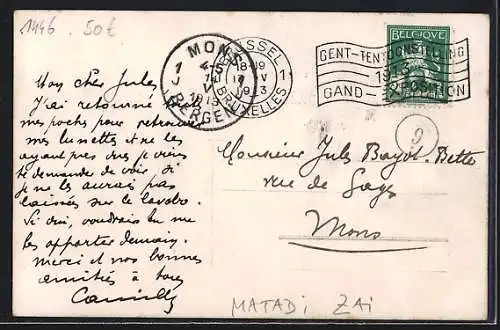 1446 50f
MONS
BERGEN
1913
BRUSSEL
BRUXELLES
BELGIQUE
GENT-TENTOONSTELLING
1913
GAND-EXPOSITION
9
Mon cher Jules
J'ai retourné
mes poches pour retrouver
mes lunettes et ne les
ayant pas je viens
te demander de voir si
je ne les aurais pas
laissées sur le lavabo.
Si oui, voudrais tu me
les apporter demain.
Merci et nos bonnes
amitiés à tous
Camille
Monsieur Jules Bayot-Bette
rue de
Mons
MATADI ZAI